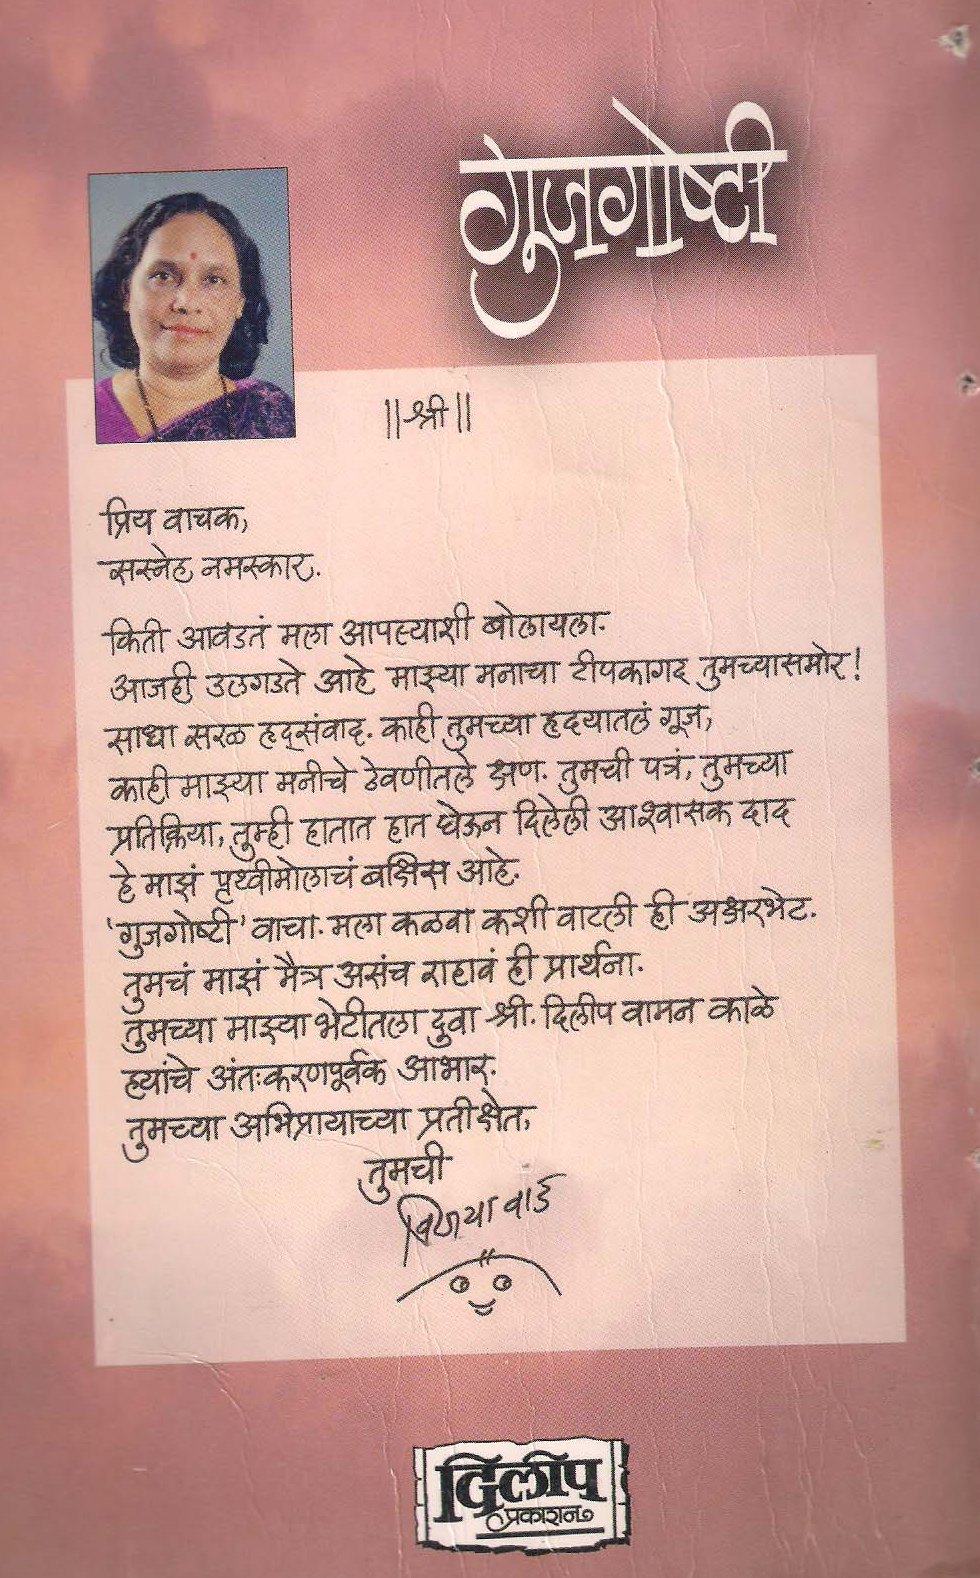 गुंजगोष्टी
||श्री||
प्रिय वाचक,
सस्नेह नमस्कार.
किती आवडतं मला आपल्याशी बोलायला.
आजही उलगडते आहे माझ्या मनाचा टीपकागद तुमच्यासमोर!
साधा सरळ हृद्संवाद. काही तुमच्या हृदयातलं गूज,
काही माझ्या मनीचे ठेवणीतले क्षण. तुमची पत्रं, तुमच्या
प्रतिक्रिया, तुम्ही हातात हात घेऊन दिलेली आश्वासक दाद
हे माझं पृथ्वीमोलाचं बक्षिस आहे.
'गुजगोष्टी' वाचा. मला कळवा कशी वाटली ही अक्षरभेट.
तुमचं माझं मैत्र असंच राहावं ही प्रार्थना.
तुमच्या माझ्या भेटीतला दुवा श्री. दिलीप वामन काळे
ह्यांचे अंतःकरणपूर्वक आभार.
तुमच्या अभिप्रायाच्या प्रतीक्षेत,
तुमची
विजया वाड
दिलीप
प्रकाशन